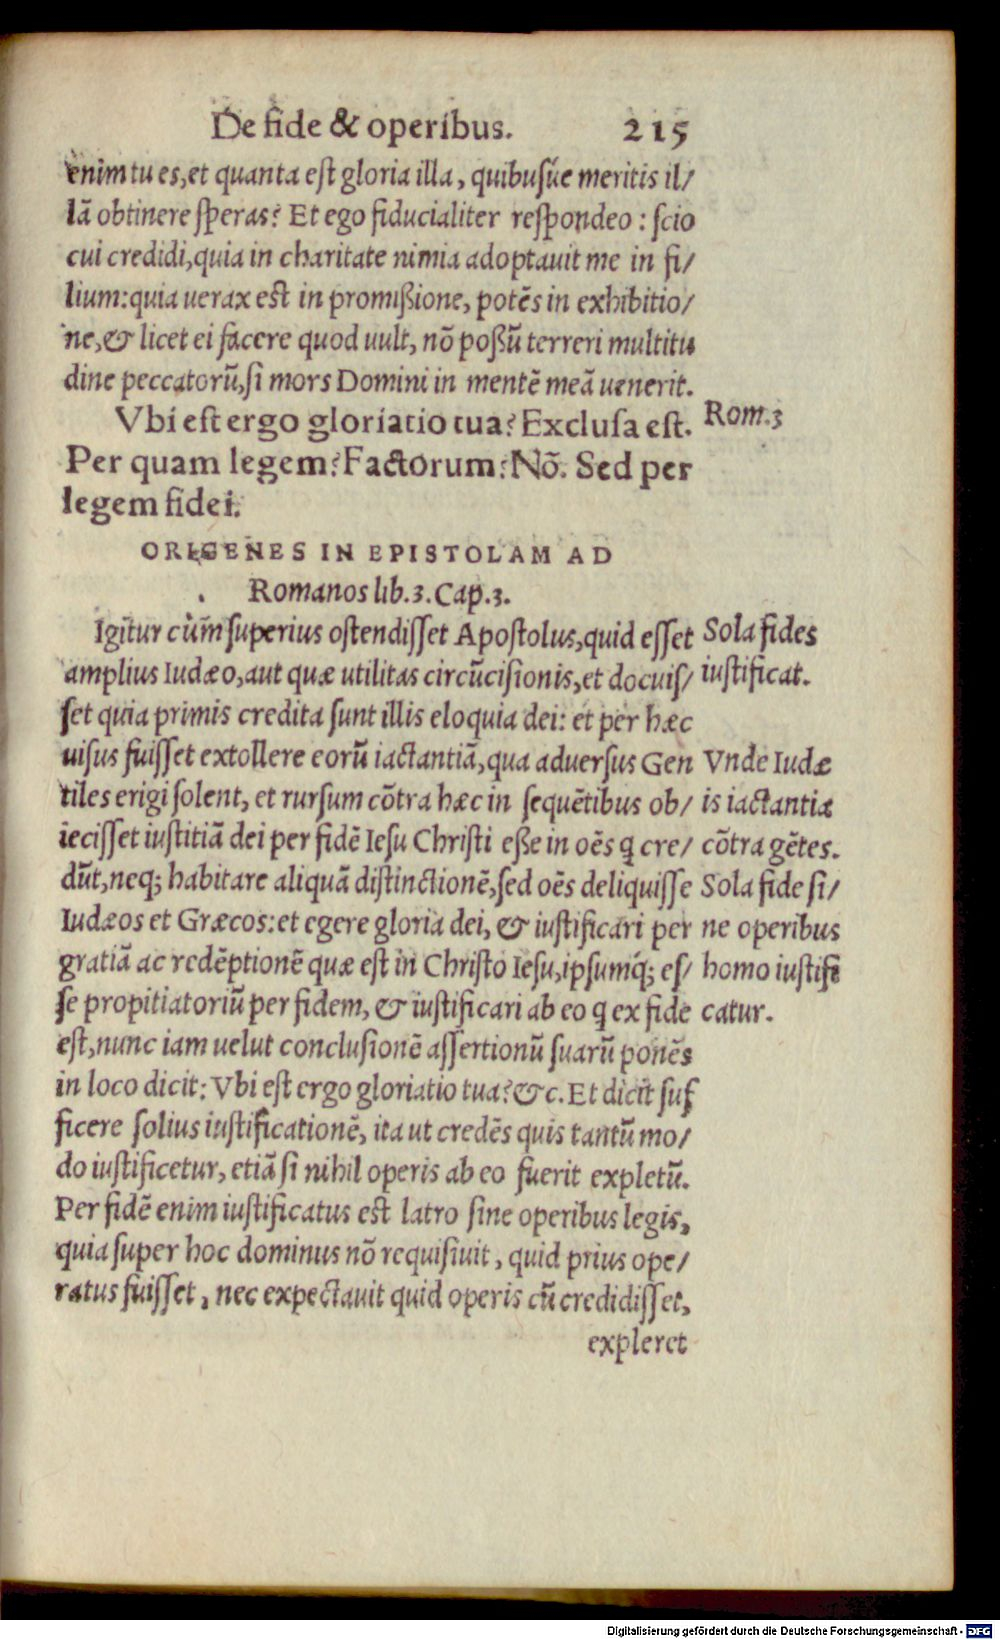 De fide & operibus. 215
enim tu es, et quanta est gloria illa, quibusúe meritis il/
lā obtinere speras? Et ego fiducialiter respondeo: scio
cui credidi, quia in charitate nimia adoptauit me in fi/
lium: quia uerax est in promißione, potēs in exhibitio/
ne, & licet ei facere quod uult, nō poßū terreri multitu
dine peccatorū, si mors Domini in mentē meā uenerit.
Vbi est ergo gloriatio tua? Exclusa est. Rom.3
Per quam legem? Factorum? Nō. Sed per
legem fidei.
ORIGENES IN EPISTOLAM AD
Romanos lib.3. Cap.3.
Igitur cùm superius ostendisset Apostolus, quid esset Sola fides
amplius Iudæo, aut quæ utilitas circūcisionis, et docuis/ iustificat.
set quia primis credita sunt illis eloquia dei: et per hæc
uisus fuisset extollere eorū iactantiā, qua aduersus Gen Vnde Iudæ
tiles erigi solent, et rursum cōtra hæc in sequētibus ob/ is iactantiæ
iecisset iustitiā dei per fidē Iesu Christi eße in oēs q̃ cre/ cōtra gētes.
dūt, neq; habitare aliquā distinctionē, sed oēs deliquisse Sola fide si/
Iudæos et Græcos: et egere gloria dei, & iustificari per ne operibus
gratiā ac redēptionē quæ est in Christo Iesu, ipsumq́; es/ homo iustifi
se propitiatoriū per fidem, & iustificari ab eo q̃ ex fide catur.
est, nunc iam uelut conclusionē assertionū suarū ponēs
in loco dicit: Vbi est ergo gloriatio tua? &c. Et dicit suf
ficere solius iustificationē, ita ut credēs quis tantū mo/
do iustificetur, etiā si nihil operis ab eo fuerit expletū.
Per fidē enim iustificatus est latro sine operibus legis,
quia super hoc dominus nō requisiuit, quid prius ope/
ratus fuisset, nec expectauit quid operis cū credidisset,
expleret
Digitalisierung gefördert durch die Deutsche Forschungsgemeinschaft - DFG